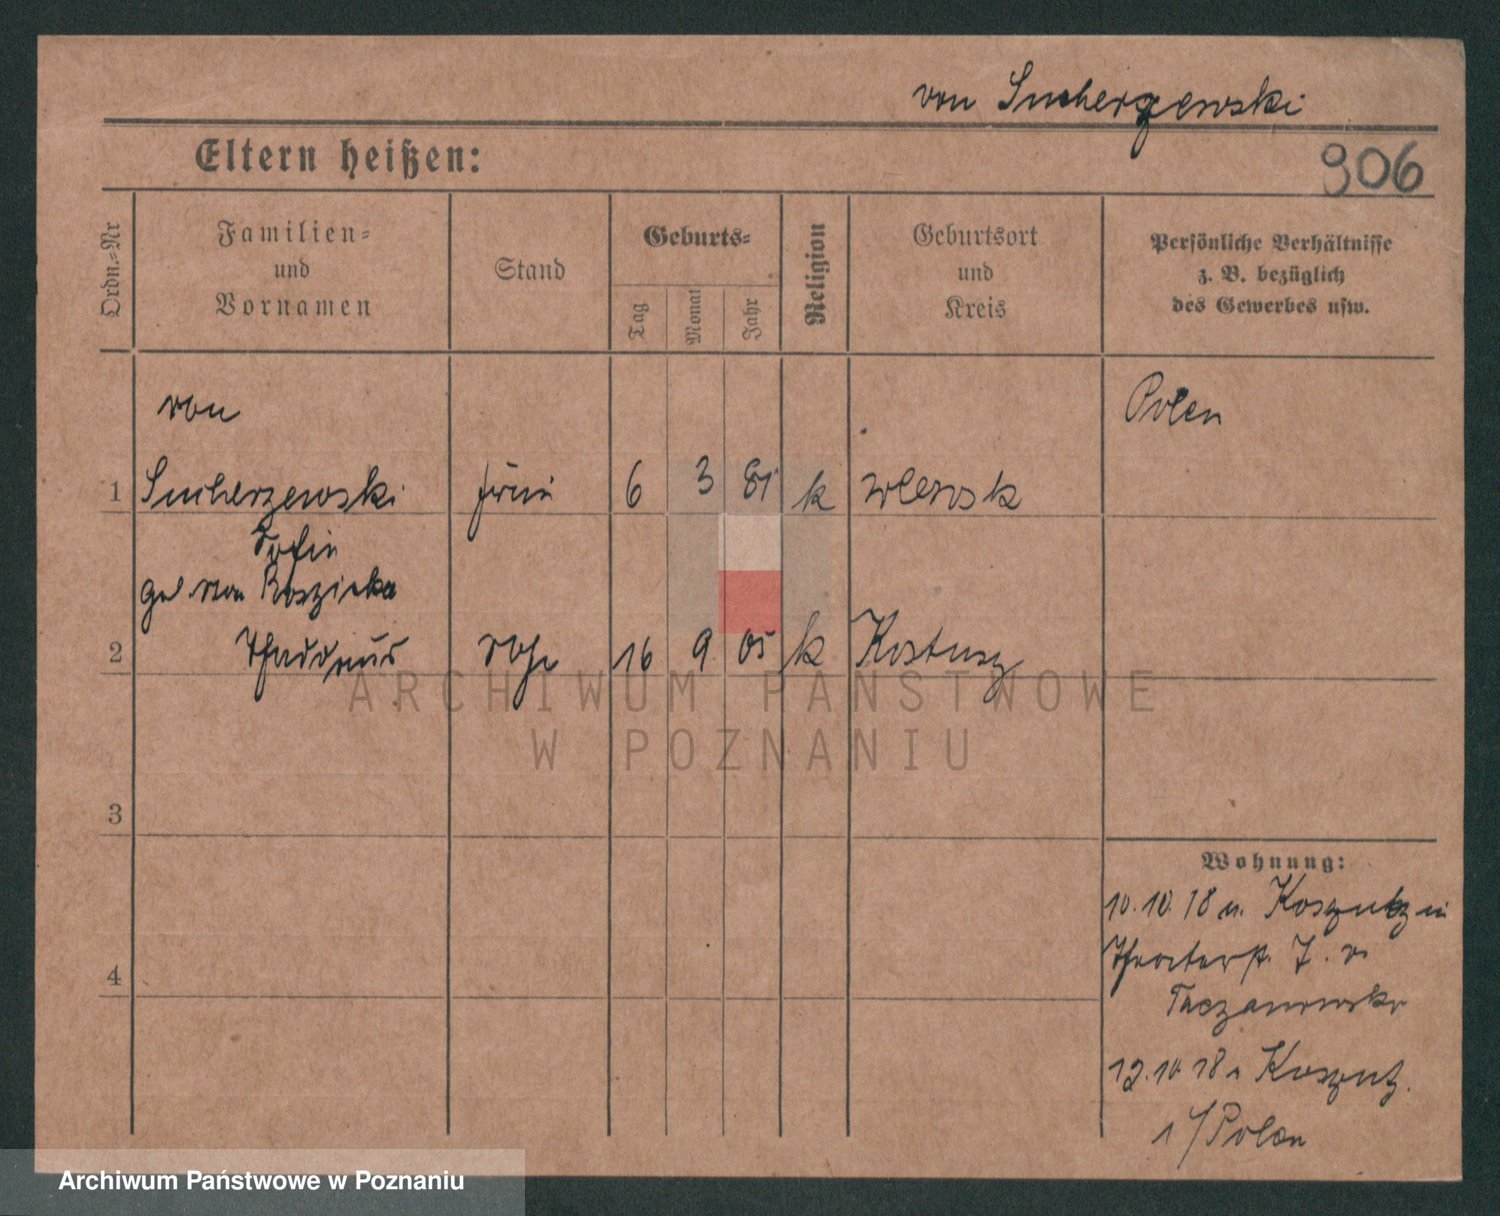 von Sucherzewski
Eltern heißen:
906
Ordn.=Nr
Familien=
und
Vornamen
Stand
Geburts=
Tag
Monat
Jahr
Religion
Geburtsort
und
Kreis
Persönliche Verhältnisse
z. B. bezüglich
des Gewerbes usw.
von
Polen
1 Sucherzewski 6 3 81 k
Sofie
geb. von Roszicka
2 Thaddäus Sohn 16 9 05 k
3
Wohnung:
10.10.18 n.
4
Taczanowski
12.10.18
/Polen
ARCHIWUM PAŃSTWOWE
W POZNANIU
Archiwum Państwowe w Poznaniu